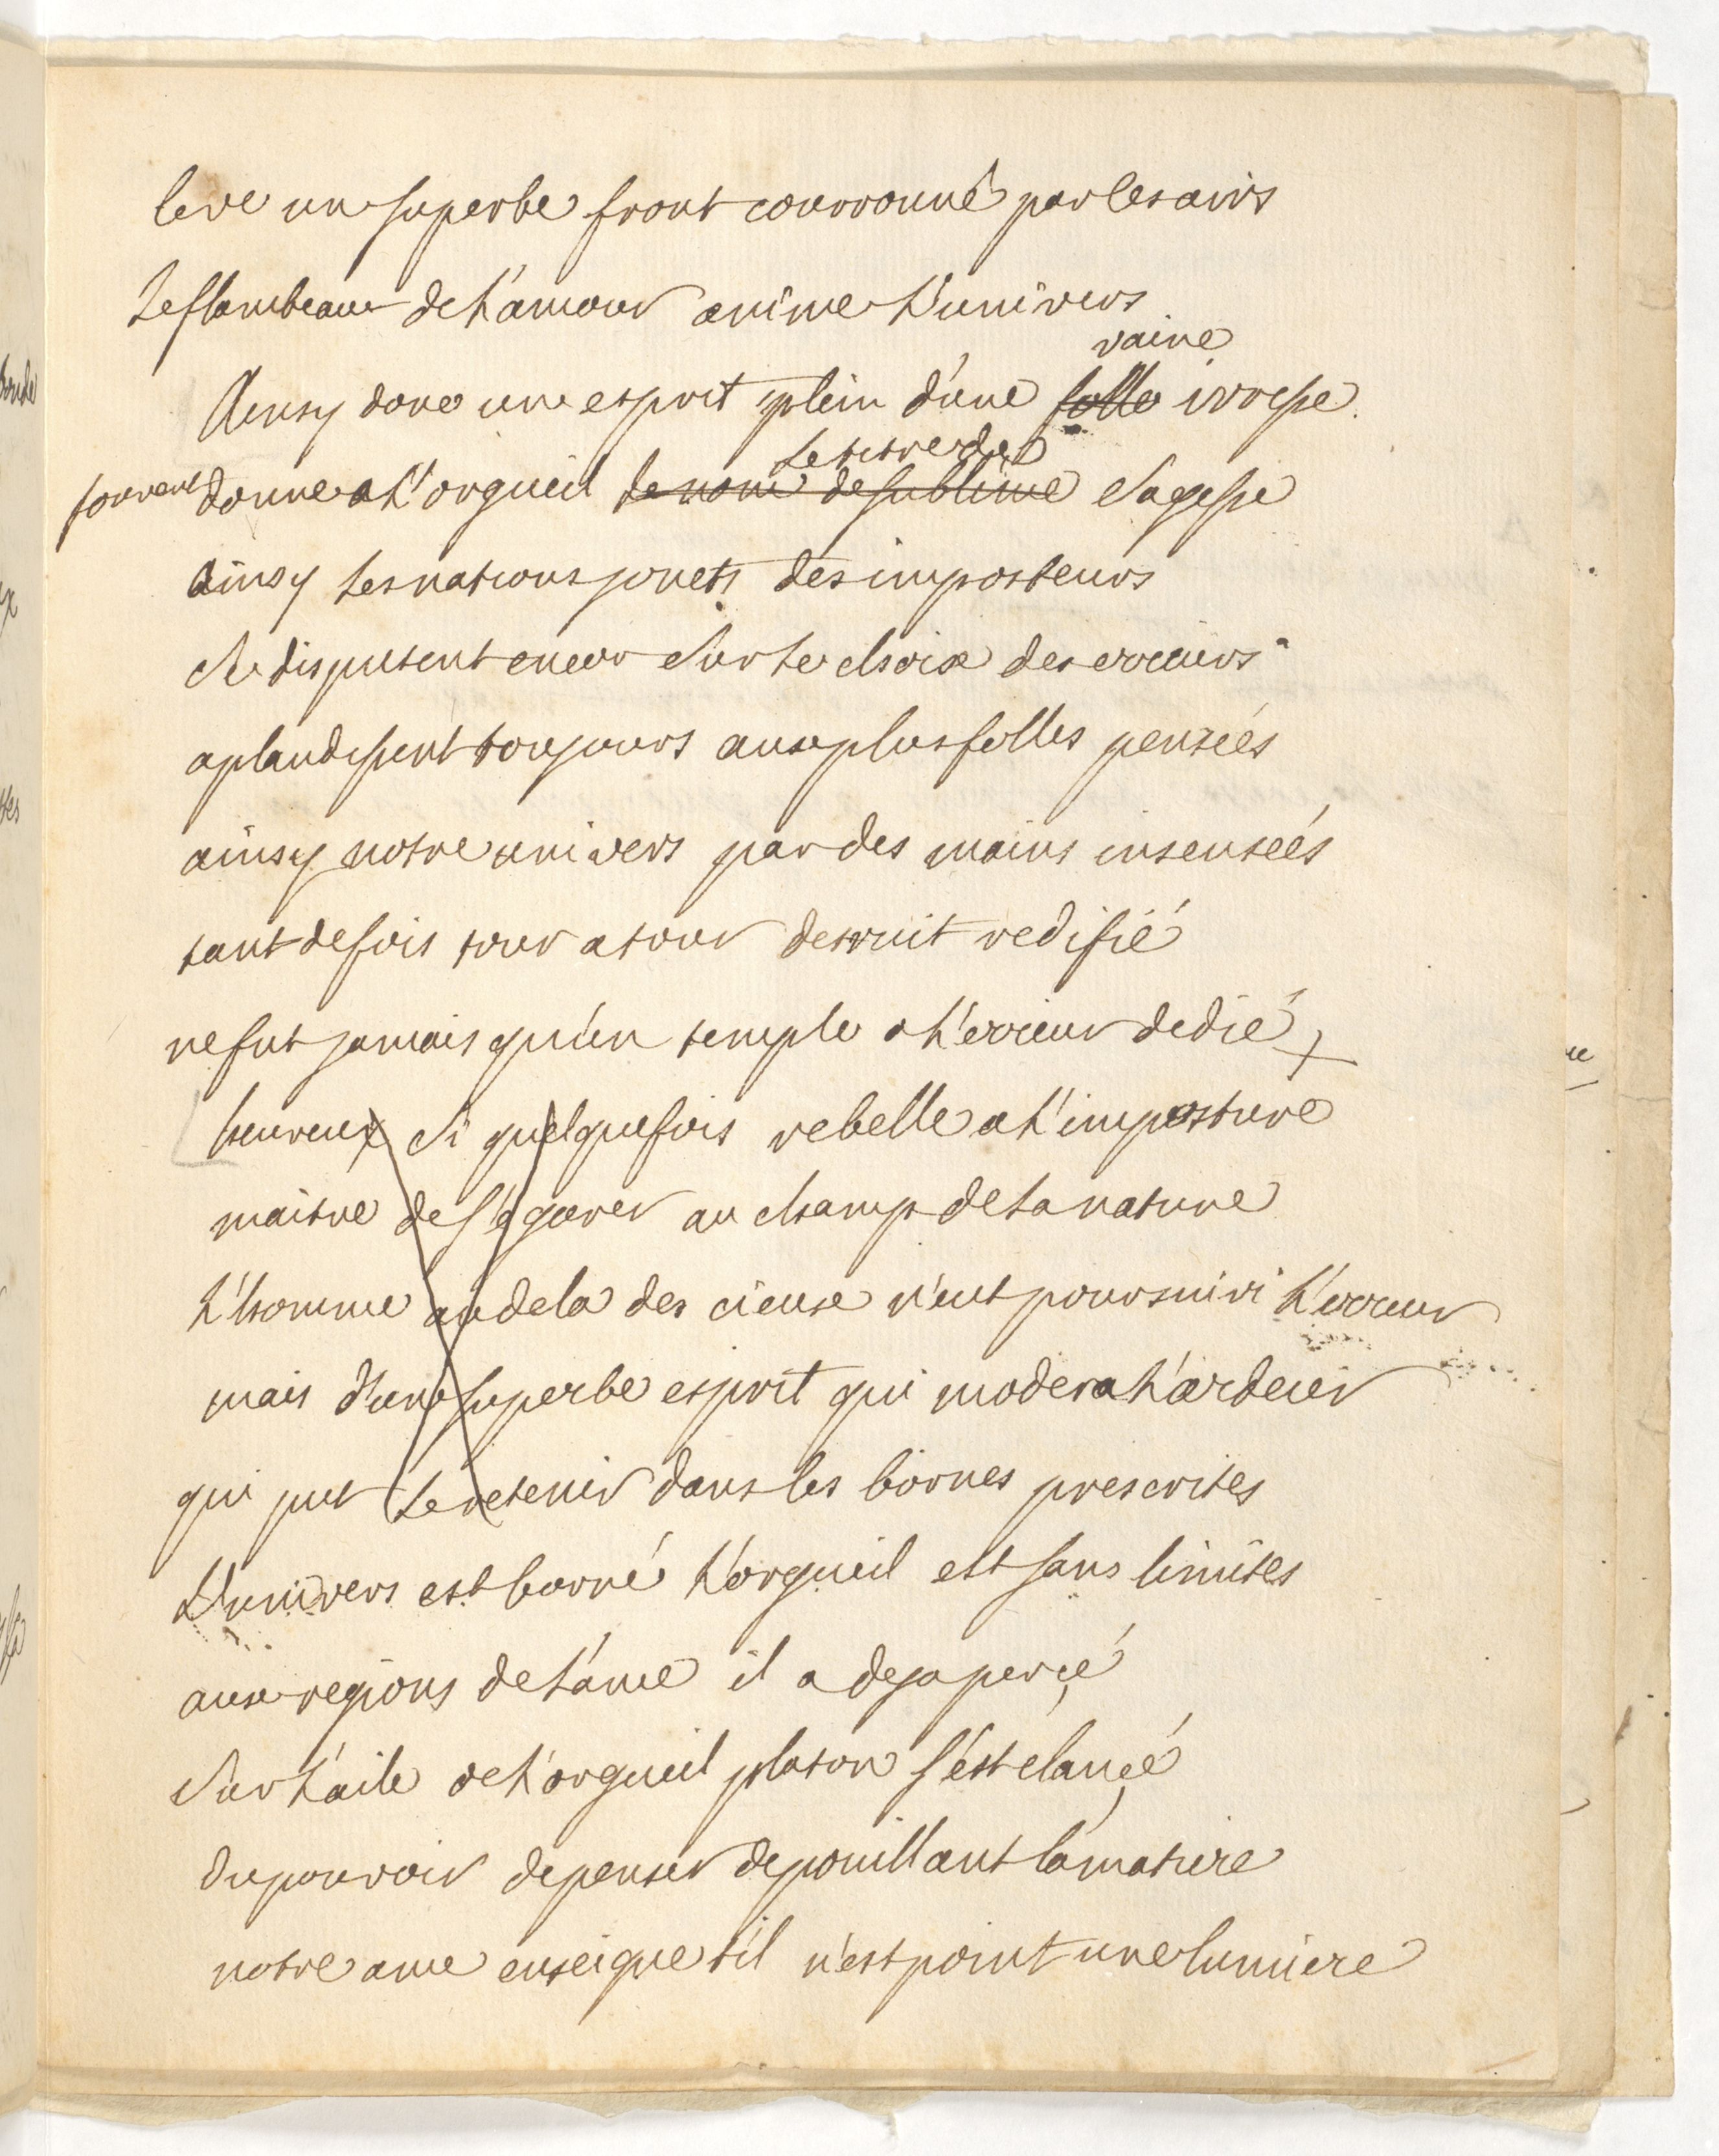 leve un superbe front couronné par les airs
Le flambeau de l'amour anime l'univers
vaine
Ainsy donc un esprit plein d'une folle ivresse
le titre de
souvent donne a l'orgueil le nom de sublime sagesse
ainsy les nations jouets des imposteurs
se disputent encor sur le choix des erreurs
aplaudissent toujours aux plus folles pensées
ainsy notre univers par des mains insensées
tant de fois tour a tour destruit redifié
ne fut jamais qu'un temple a l'erreur dedié
heureux si quelquefois rebelle a l'imposture
maitre de s'egarer au champ de la nature
l'homme au dela des cieux n'eut poursuivi l'erreur
mais d'un superbe esprit qui modera l'ardeur
qui put le retenir dans les bornes prescrites
L'univers est borné l'orgueil est sans limites
aux regions de l'ame il a deja percé
sur l'aile de l'orgueil platon s'est élancé
du pouvoir de penser depouillant la matiere
notre ame enseigne t'il n'est point une lumiere